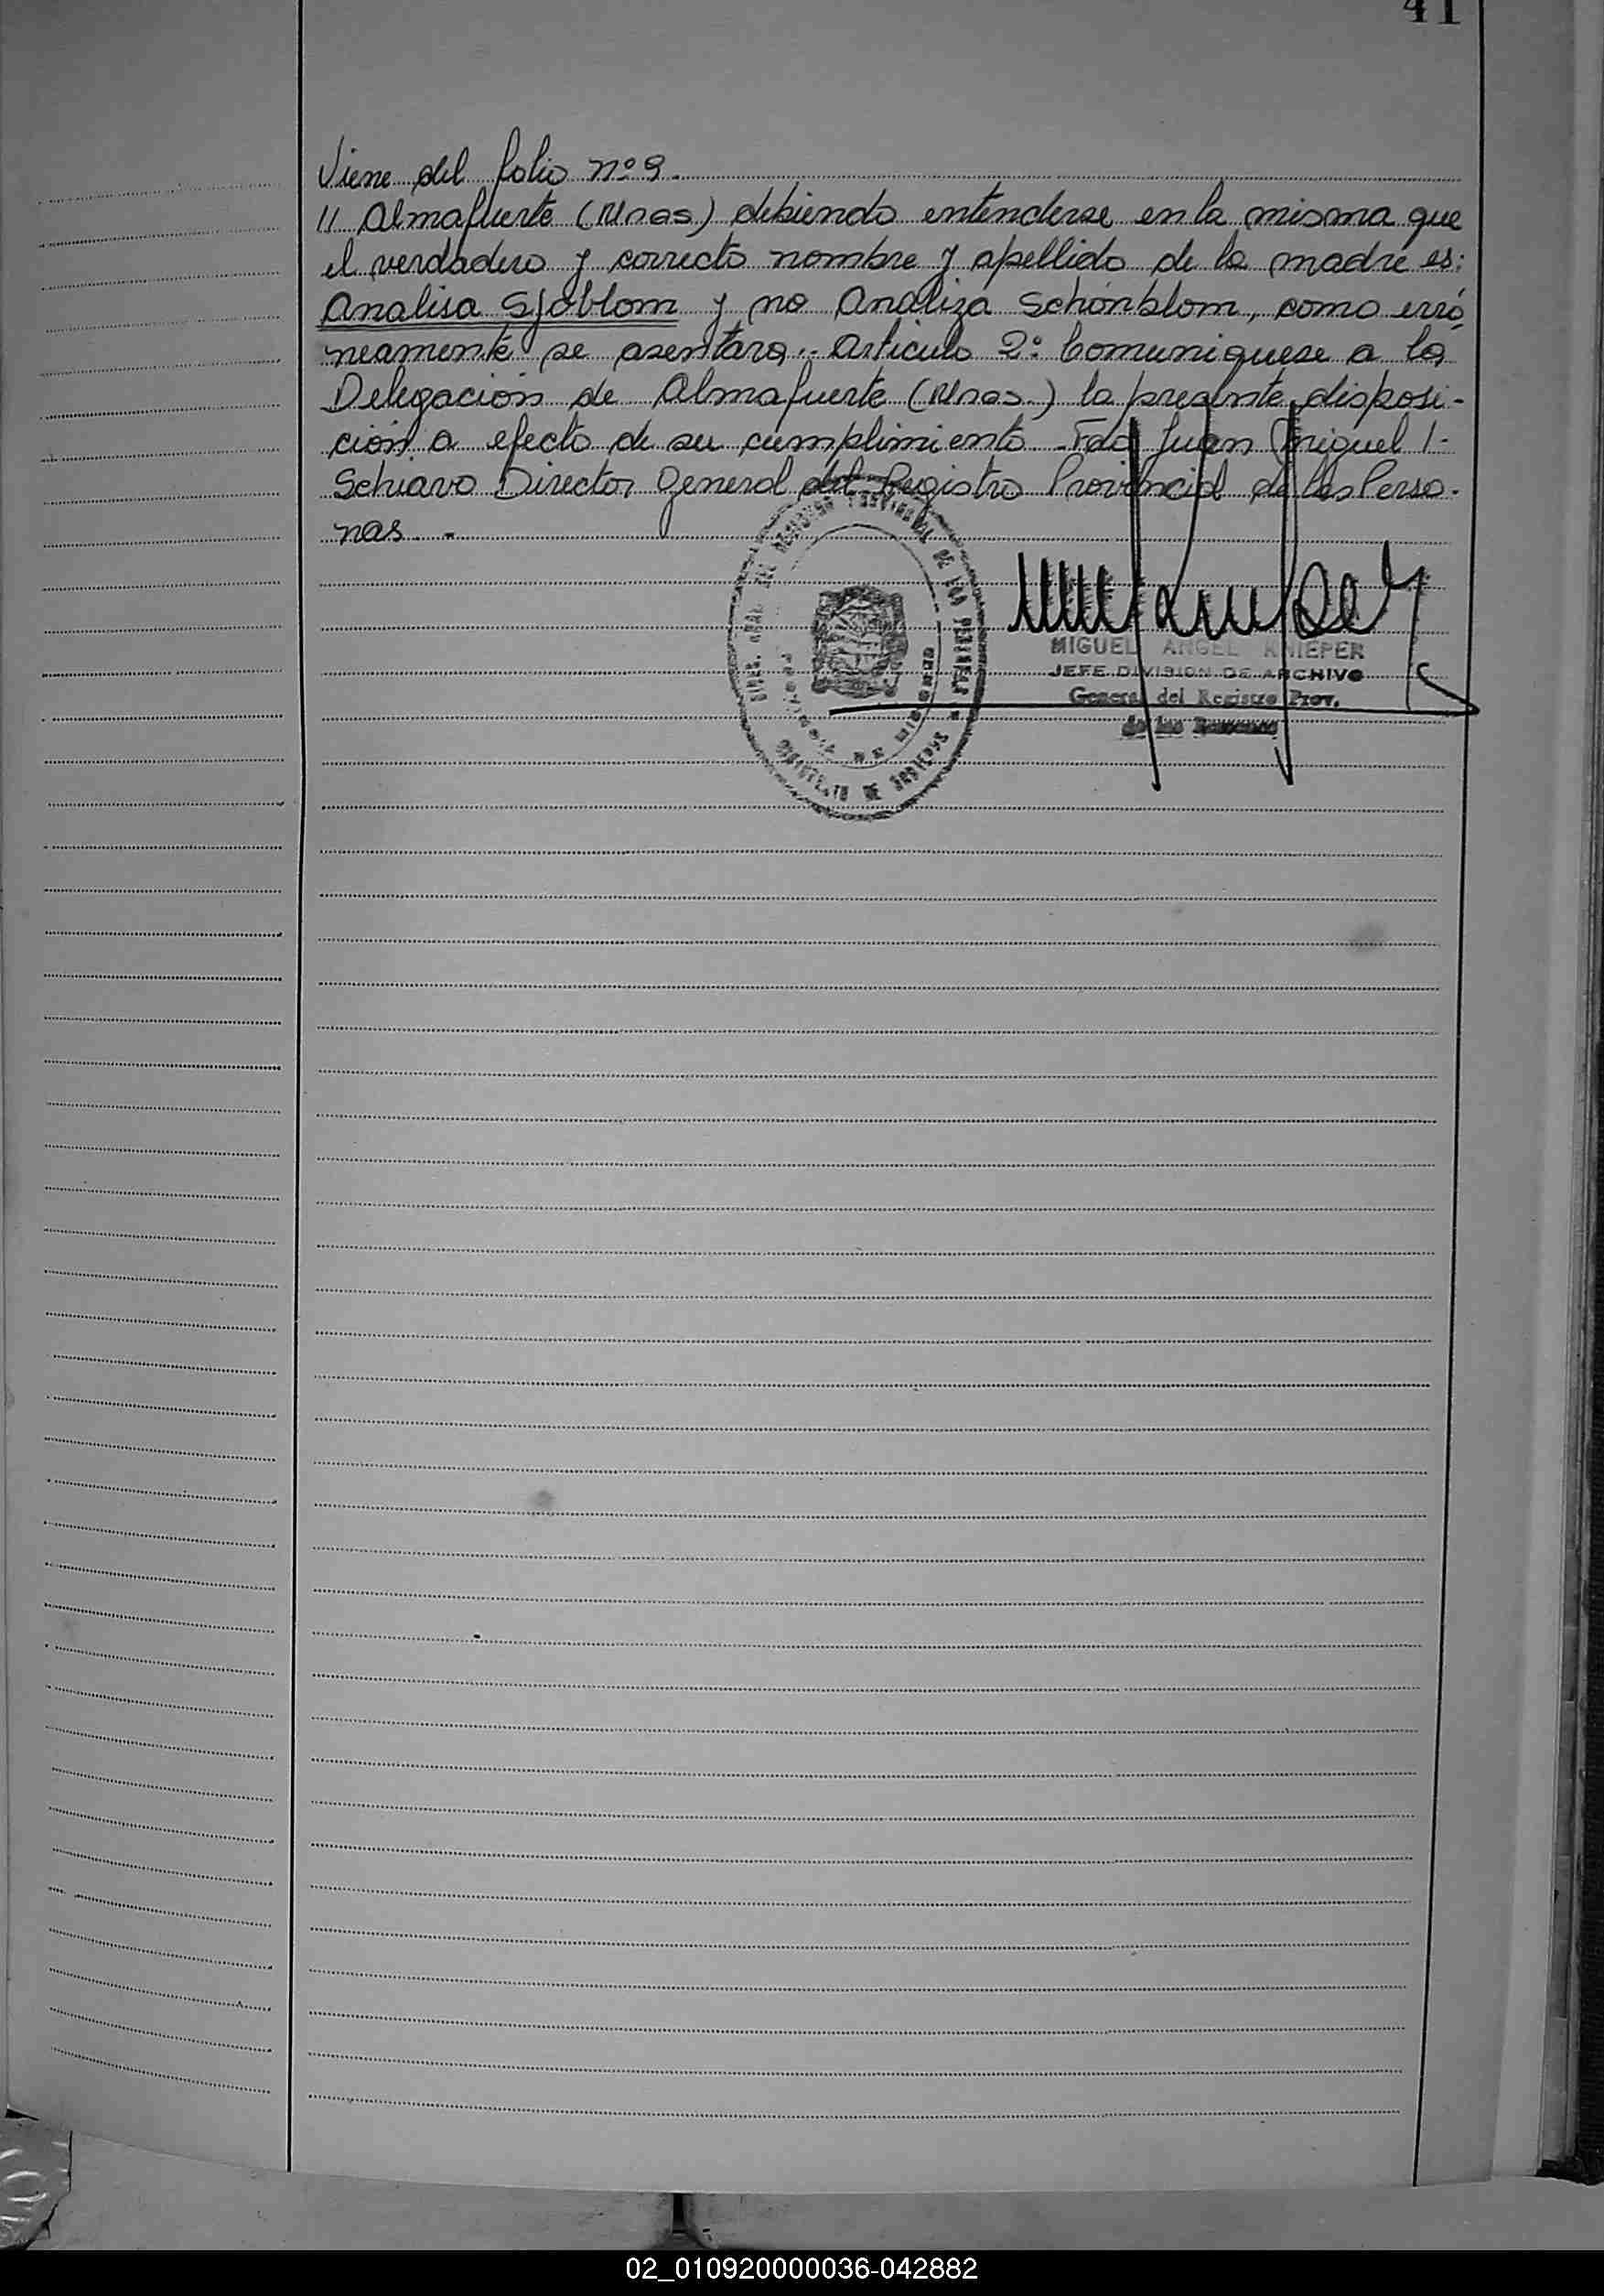 41
Viene del folio nº 9.
11 Almafuerte (Mnes.) debiendo entenderse en la misma que
el verdadero y correcto nombre y apellido de la madre es:
Analisa Sjöblom y no Analiza Schönblom, como erró
neamente se asentara.. Artículo 2º: Comuníquese a la
Delegación de Almafuerte (Mnes.) la presente disposi-
ción a efecto de su cumplimiento. Fdo Juan Miguel I.
Schiavo Director General del Registro Provincial de las Perso-
nas. -
MIGUEL ANGEL KNIEPER
JEFE DIVISION DE ARCHIVO
General del Registro Prov.
de las Personas
02_010920000036-042882